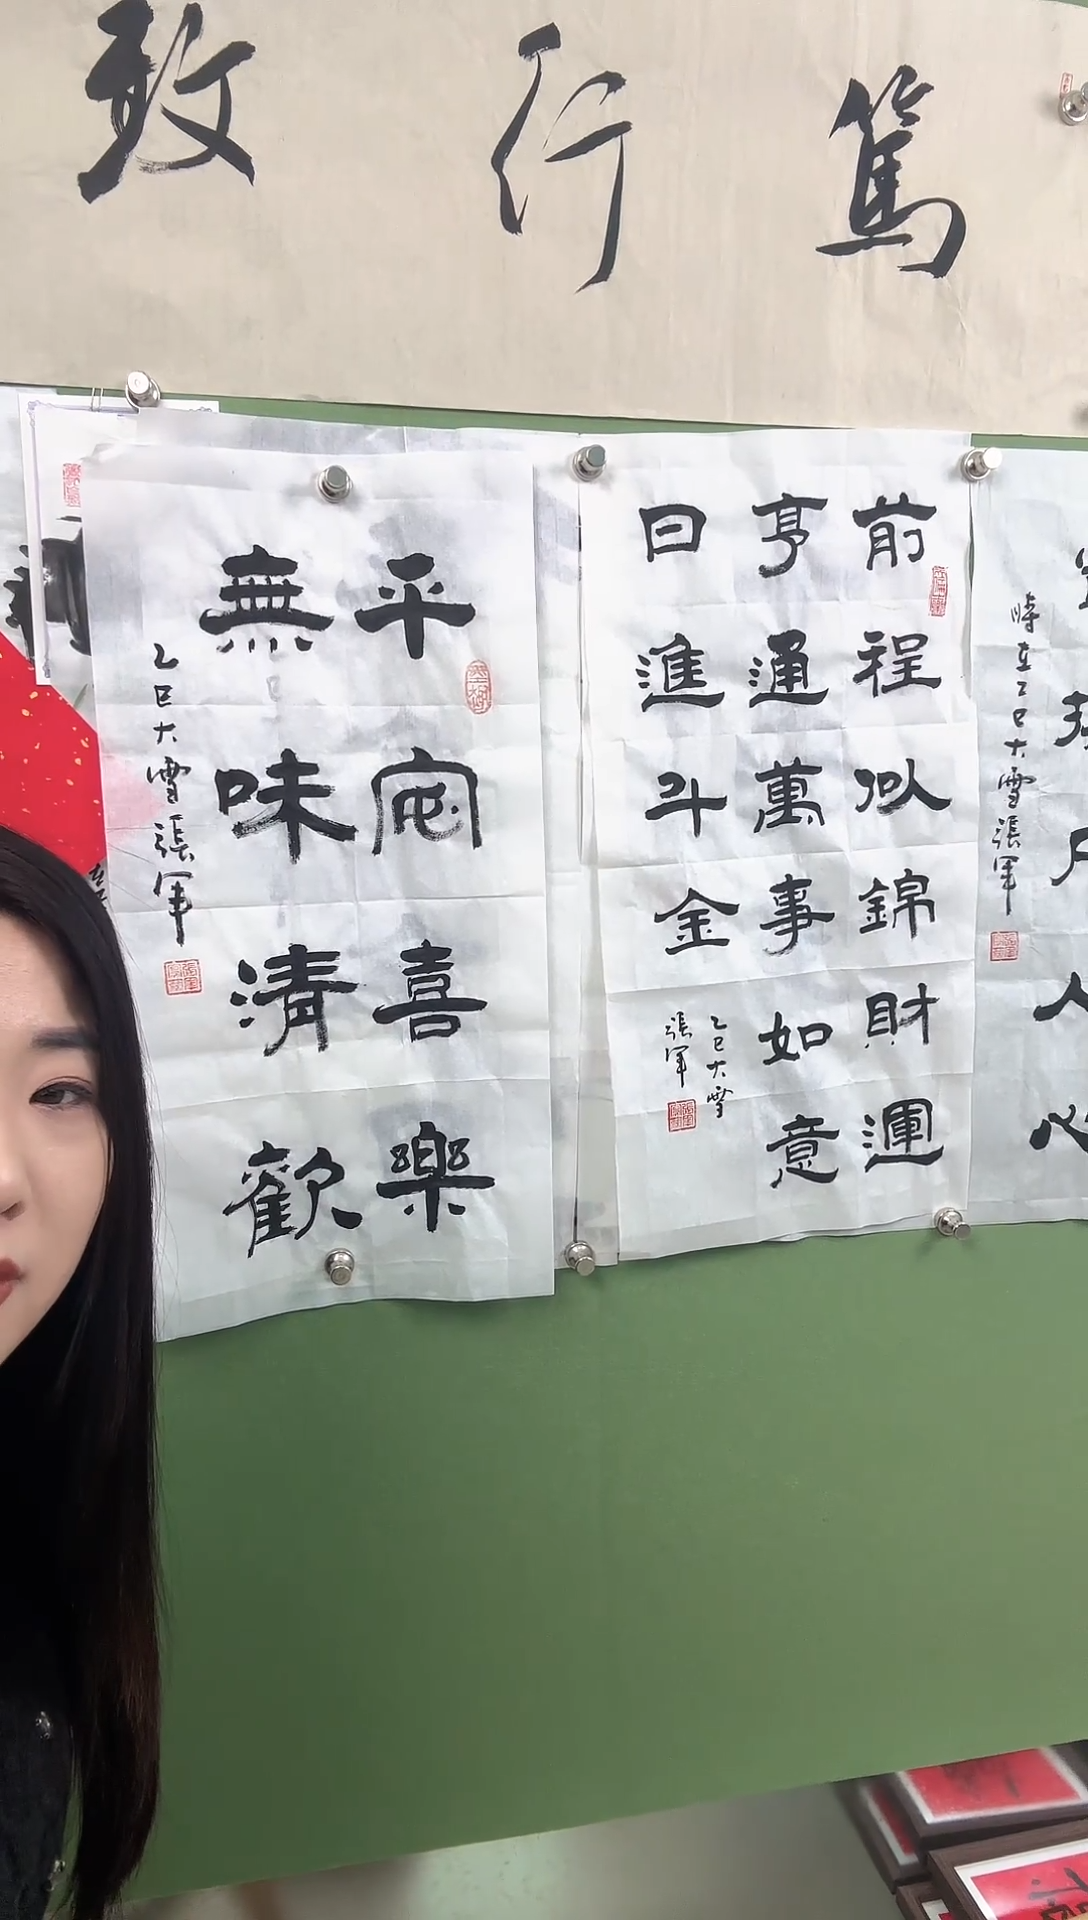 篤行致
前程似錦財運
亨通萬事如意
日進斗金
乙巳大雪
張軍
平安喜樂
無味清歡
乙巳大雪張軍
時在乙巳大雪張軍
人
心